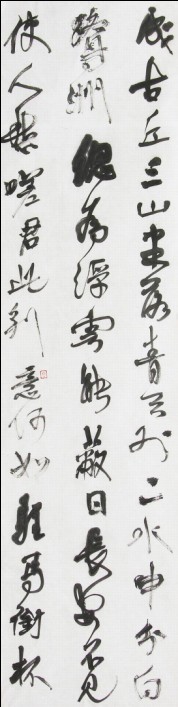 成古丘三山半落青天外二水中分白
鷺洲總為浮雲能蔽日長安不見
使人愁嗟君此別意何如駐馬銜杯